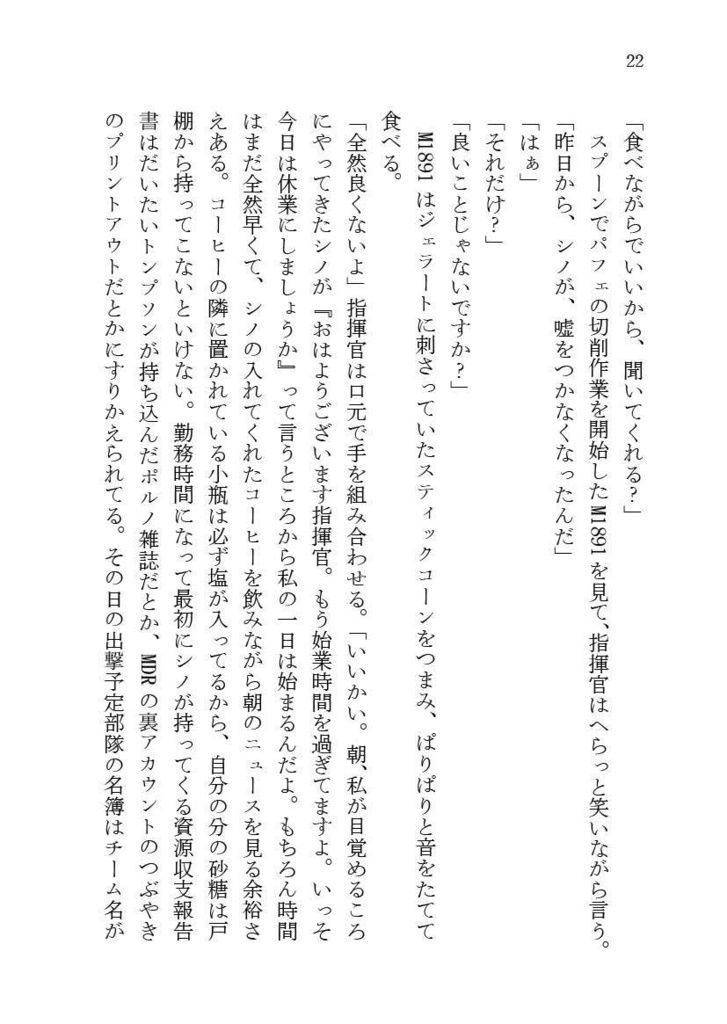 22
「食べながらでいいから、聞いてくれる?」
スプーンでパフェの切削作業を開始したM1891を見て、指揮官はへらっと笑いながら言う。
「昨日から、シノが、嘘をつかなくなったんだ」
「はぁ」
「それだけ?」
「良いことじゃないですか?」
M1891はジェラートに刺さっていたスティックコーンをつまみ、ぱりぱりと音をたてて
食べる。
「全然良くないよ」指揮官は口元で手を組み合わせる。「いいかい。朝、私が目覚めるころ
にやってきたシノが『おはようございます指揮官。もう始業時間を過ぎてますよ。いっそ
今日は休業にしましょうか』って言うところから私の一日は始まるんだよ。もちろん時間
はまだ全然早くて、シノの入れてくれたコーヒーを飲みながら朝のニュースを見る余裕さ
えある。コーヒーの隣に置かれている小瓶は必ず塩が入ってるから、自分の分の砂糖は戸
棚から持ってこないといけない。勤務時間になって最初にシノが持ってくる資源収支報告
書はだいたいトンプソンが持ち込んだポルノ雑誌だとか、MDRの裏アカウントのつぶやき
のプリントアウトだとかにすりかえられてる。その日の出撃予定部隊の名簿はチーム名が